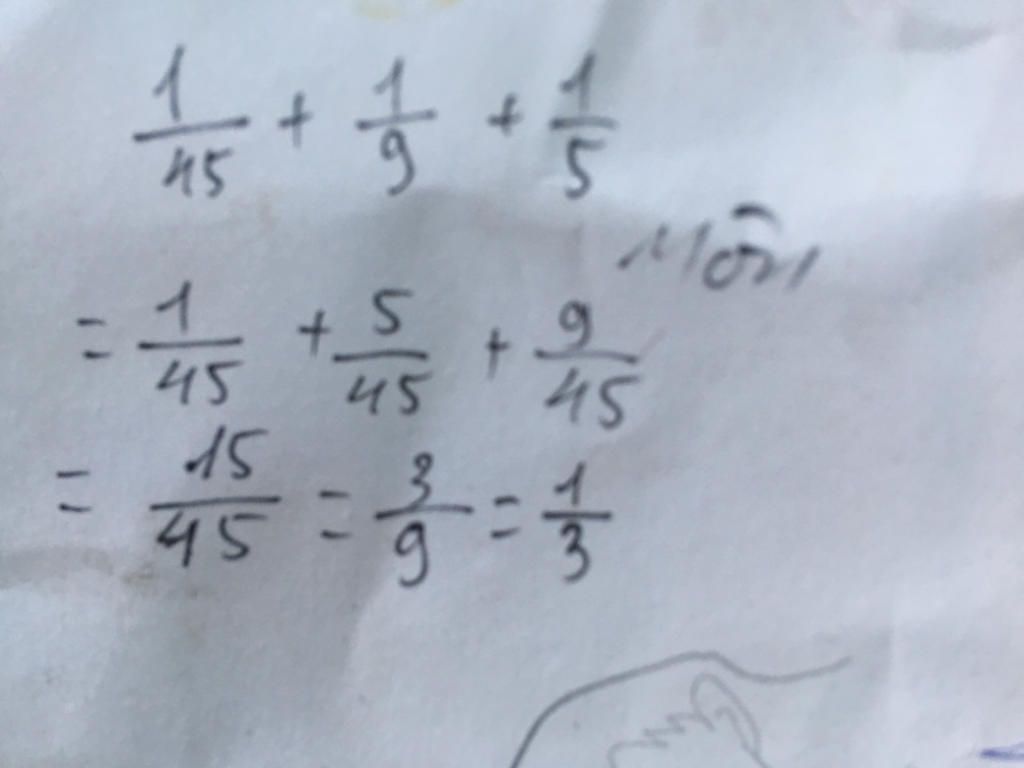 1/45 + 1/9 + 1/5
= 1/45 + 5/45 + 9/45
= 15/45 = 3/9 = 1/3